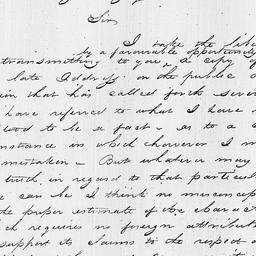 Sir
I take the libe
by a favourable opportunity
transmitting to you, a copy of
late Address on the public
in that has called for the seve
have referred to what I have
to be a fact - as to a
instance in which however I m
mistaken - But whatever may
truth in regard to that particul
can be I think no misconcep
the proper estimate of the charact
ich requires no foreign attribut
support its claims to the respect o